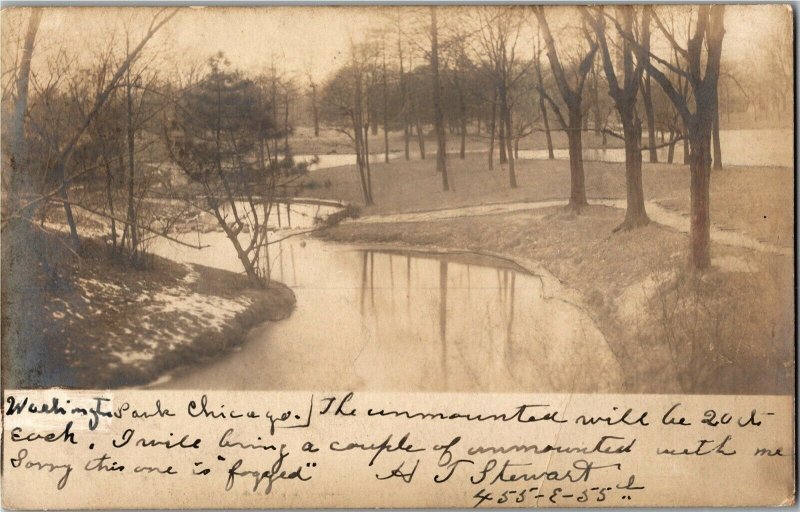 Washington Park Chicago. The unmounted will be 20cts
Each. I will bring a couple of unmounted with me
Sorry this one is "fogged" H J Stewart
455-E-55th